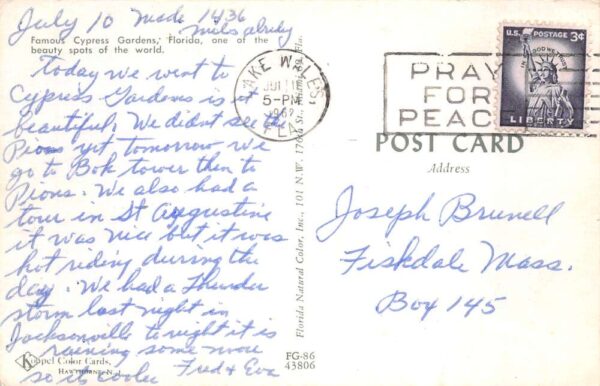 July 10 Made 1436
miles already
Famous Cypress Gardens, Florida, one of the
beauty spots of the world.
Today we went to
Cypress Gardens is it
beautiful. We didnt see the
Pions yet tomorrow we
go to Bok tower then to
Pions. We also had a
tour in St Augustine
it was nice but it was
hot riding during the
day. We had a Thunder
storm last night in
Jacksonville tonight it is
raining some more
so its cooler Fred & Eva
Koppel Color Cards,
HAWTHORNE, N. J.
Florida Natural Color, Inc., 101 N.W. 176th St. Miami 69, Fla.
LAKE WALES
JUL 11
5-PM
FLA.
PRAY
FOR
PEACE
U.S. POSTAGE 3¢
IN GOD WE TRUST
LIBERTY
POST CARD
Address
Joseph Brunell
Fiskdale Mass.
Box 145
FG-86
43806